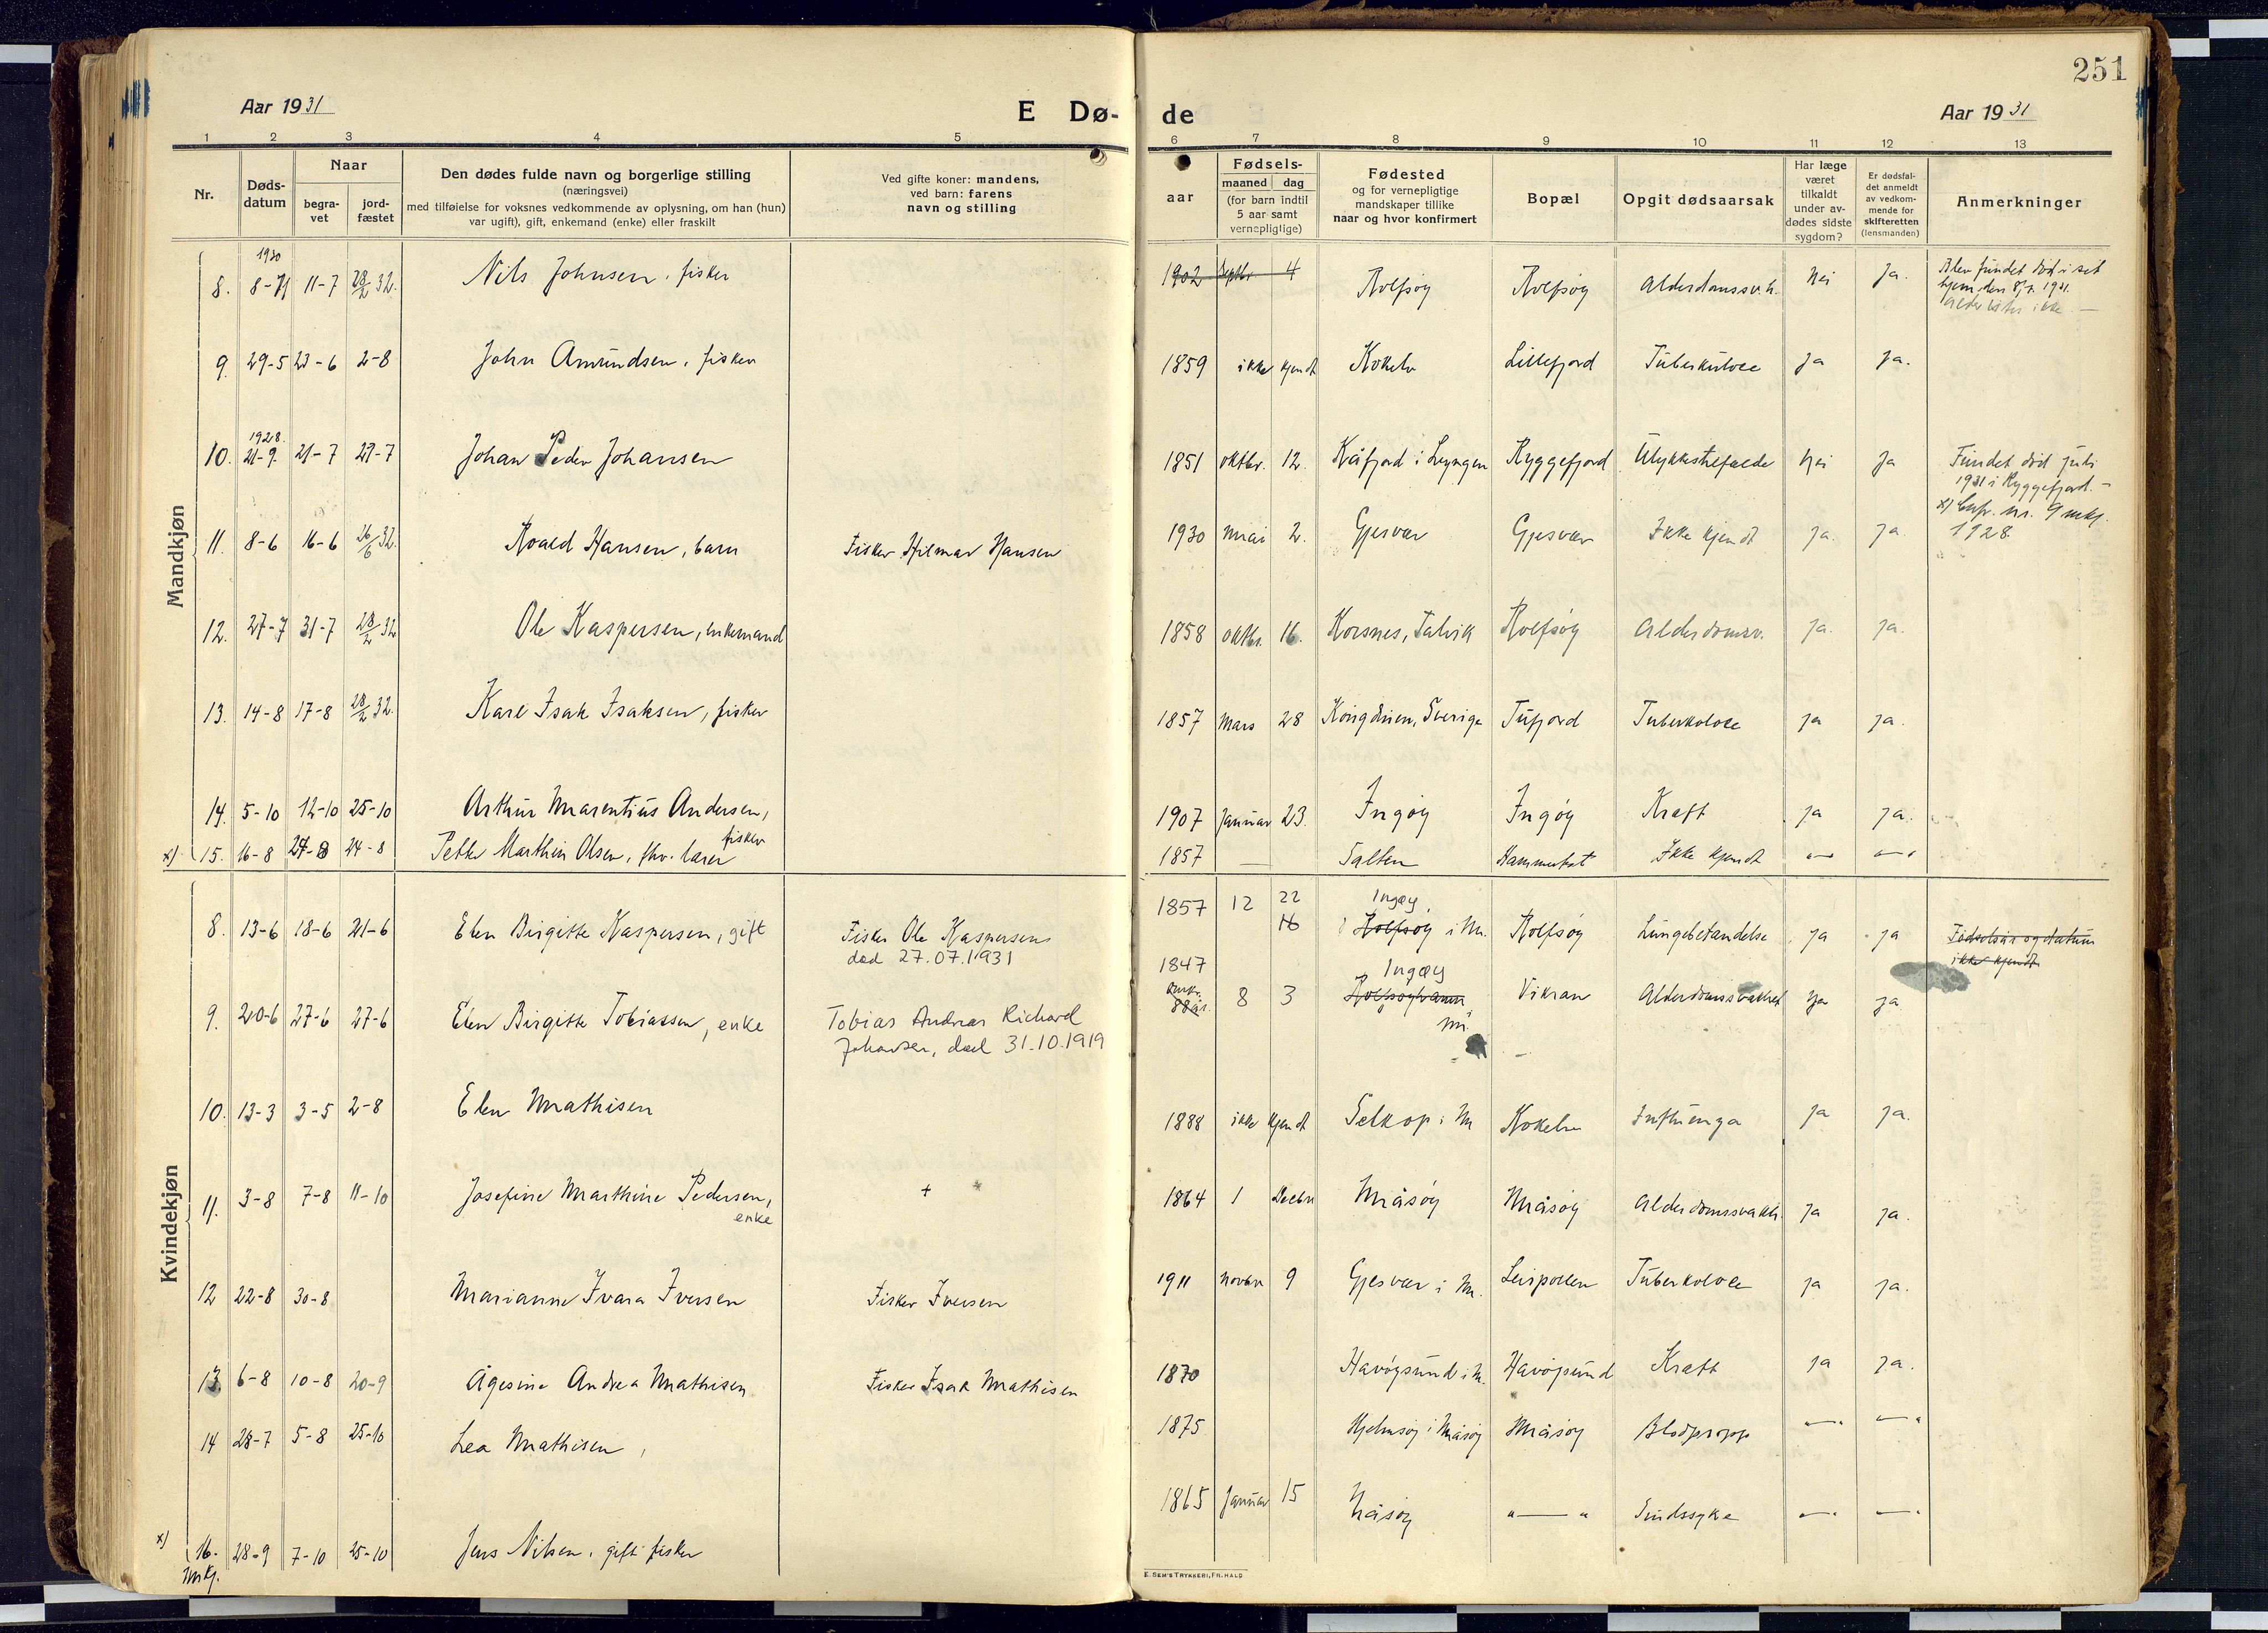 251
Aar 1931
E Dø-
de
Aar 1931
1 2 3 4 5
6 7 8 9 10 11 12 13
Nr.
Døds-
datum
Naar
begra-
vet
jord-
fæstet
Den dødes fulde navn og borgerlige stilling
(næringsvei)
med tilføielse for voksnes vedkommende av oplysning, om han (hun)
var ugift), gift, enkemand (enke) eller fraskilt
Ved gifte koner: mandens,
ved barn: farens
navn og stilling
Fødsels-
aar
maaned dag
(for barn indtil
5 aar samt
vernepligtige)
Fødested
og for vernepligtige
mandskaper tillike
naar og hvor konfirmert
Bopæl
Opgit dødsaarsak
Har læge
været
tilkaldt
under av-
dødes sidste
sygdom?
Er dødsfal-
det anmeldt
av vedkom-
mende for
skifteretten
(lensmanden)
Anmerkninger
Mandkjøn
1930
8. 8-7 11-7 28/2 32. Nils Johnsen, fisker 1902 Septbr 4 Rolfsøy Rolfsøy Alderdomssv.h. Nei Ja. Blev fundet død i sit
hjem den 8/7. 1931.
Alder vites ikke.
9. 29-5 23-6 2-8 John Amundsen, fisker 1859 ikke kjendt Kokelv Lillefjord Tuberkulose Ja Ja.
1928.
10. 21-9. 21-7 27-7 Johan Peder Johansen 1851 oktbr. 12. Kåfjord i Lyngen Ryggefjord Ulykkestilfælde Nei Ja Fundet død juli
1931 i Ryggefjord. -
x) Cnfr. nr. 9 mkj.
1928.
11. 8-6 16-6 26/6 32. Roald Hansen, barn Fisker Hilmar Hansen 1930 Mai 2. Gjesvær Gjesvær Ikke kjendt Ja. Ja.
12. 27-7 31-7 28/2 32 Ole Kaspersen, enkemand 1858 oktbr. 16. Korsnes, Talvik Rolfsøy Alderdomsv. Ja. Ja.
13. 14-8 17-8 28/2 32. Karl Isak Isaksen, fisker 1857 Mars 28 Sverige Tufjord Tuberkolose Ja Ja.
14. 5-10 12-10 25-10 Arthur Marentius Andersen,
fisker 1907 Januar 23. Ingøy Ingøy Kræft Ja Ja.
x) 15. 16-8 24-8 24-8 Petter Marthin Olsen, fhv. lærer 1857 — Salten Ikke kjendt "—" "—"
Kvindekjøn
8. 13-6 18-6 21-6 Elen Birgitte Kaspersen, gift Fisker Ole Kaspersen
død 27.07.1931 1857 12 22
16 Ingøy,
Rolfsøy i M. Rolfsøy Lungebetændelse Ja Ja Fødselsår og datum
ikke kjendt
9. 20-6 27-6 27-6 Elen Birgitte Tobiassen, enke Tobias Andreas Richard
Johansen, død 31.10.1919 1847
88 år. 8 3 Ingøy
Rolfsøyhamn
M. Vikran Alderdomssvakhet Ja Ja
10. 13-3 3-5 2-8 Elen Mathisen 1888 ikke kjendt Selkop i M Kokelv Influenza Ja Ja.
11. 3-8 7-8 11-10 Josefine Marthine Pedersen,
enke + * 1864 1 Decbr Måsøy Måsøy Alderdomssvakh. Ja Ja.
12 22-8 30-8 Marianne Ivara Iversen Fisker Iversen 1911 Novbr 9 Gjesvær i M. Leirpollen Tuberkolose Ja Ja.
13. 6-8 10-8 20-9 Ågesine Andrea Mathisen Fisker Isak Mathisen 1870 Havøysund i M. Havøysund Kræft Ja Ja.
14 28-7 5-8 25-10 Lea Mathisen, 1875 Hjelmsøy i Måsøy Måsøy Blodpropp "—" "—"
x) 16. 28-9 7-10 25-10 Jens Nilsen, gift fisker 1865 Januar 15 Måsøy "—" Sindssyke "—" "—"
Mkj.
E. SEM'S TRYKKERI, FR.HALD